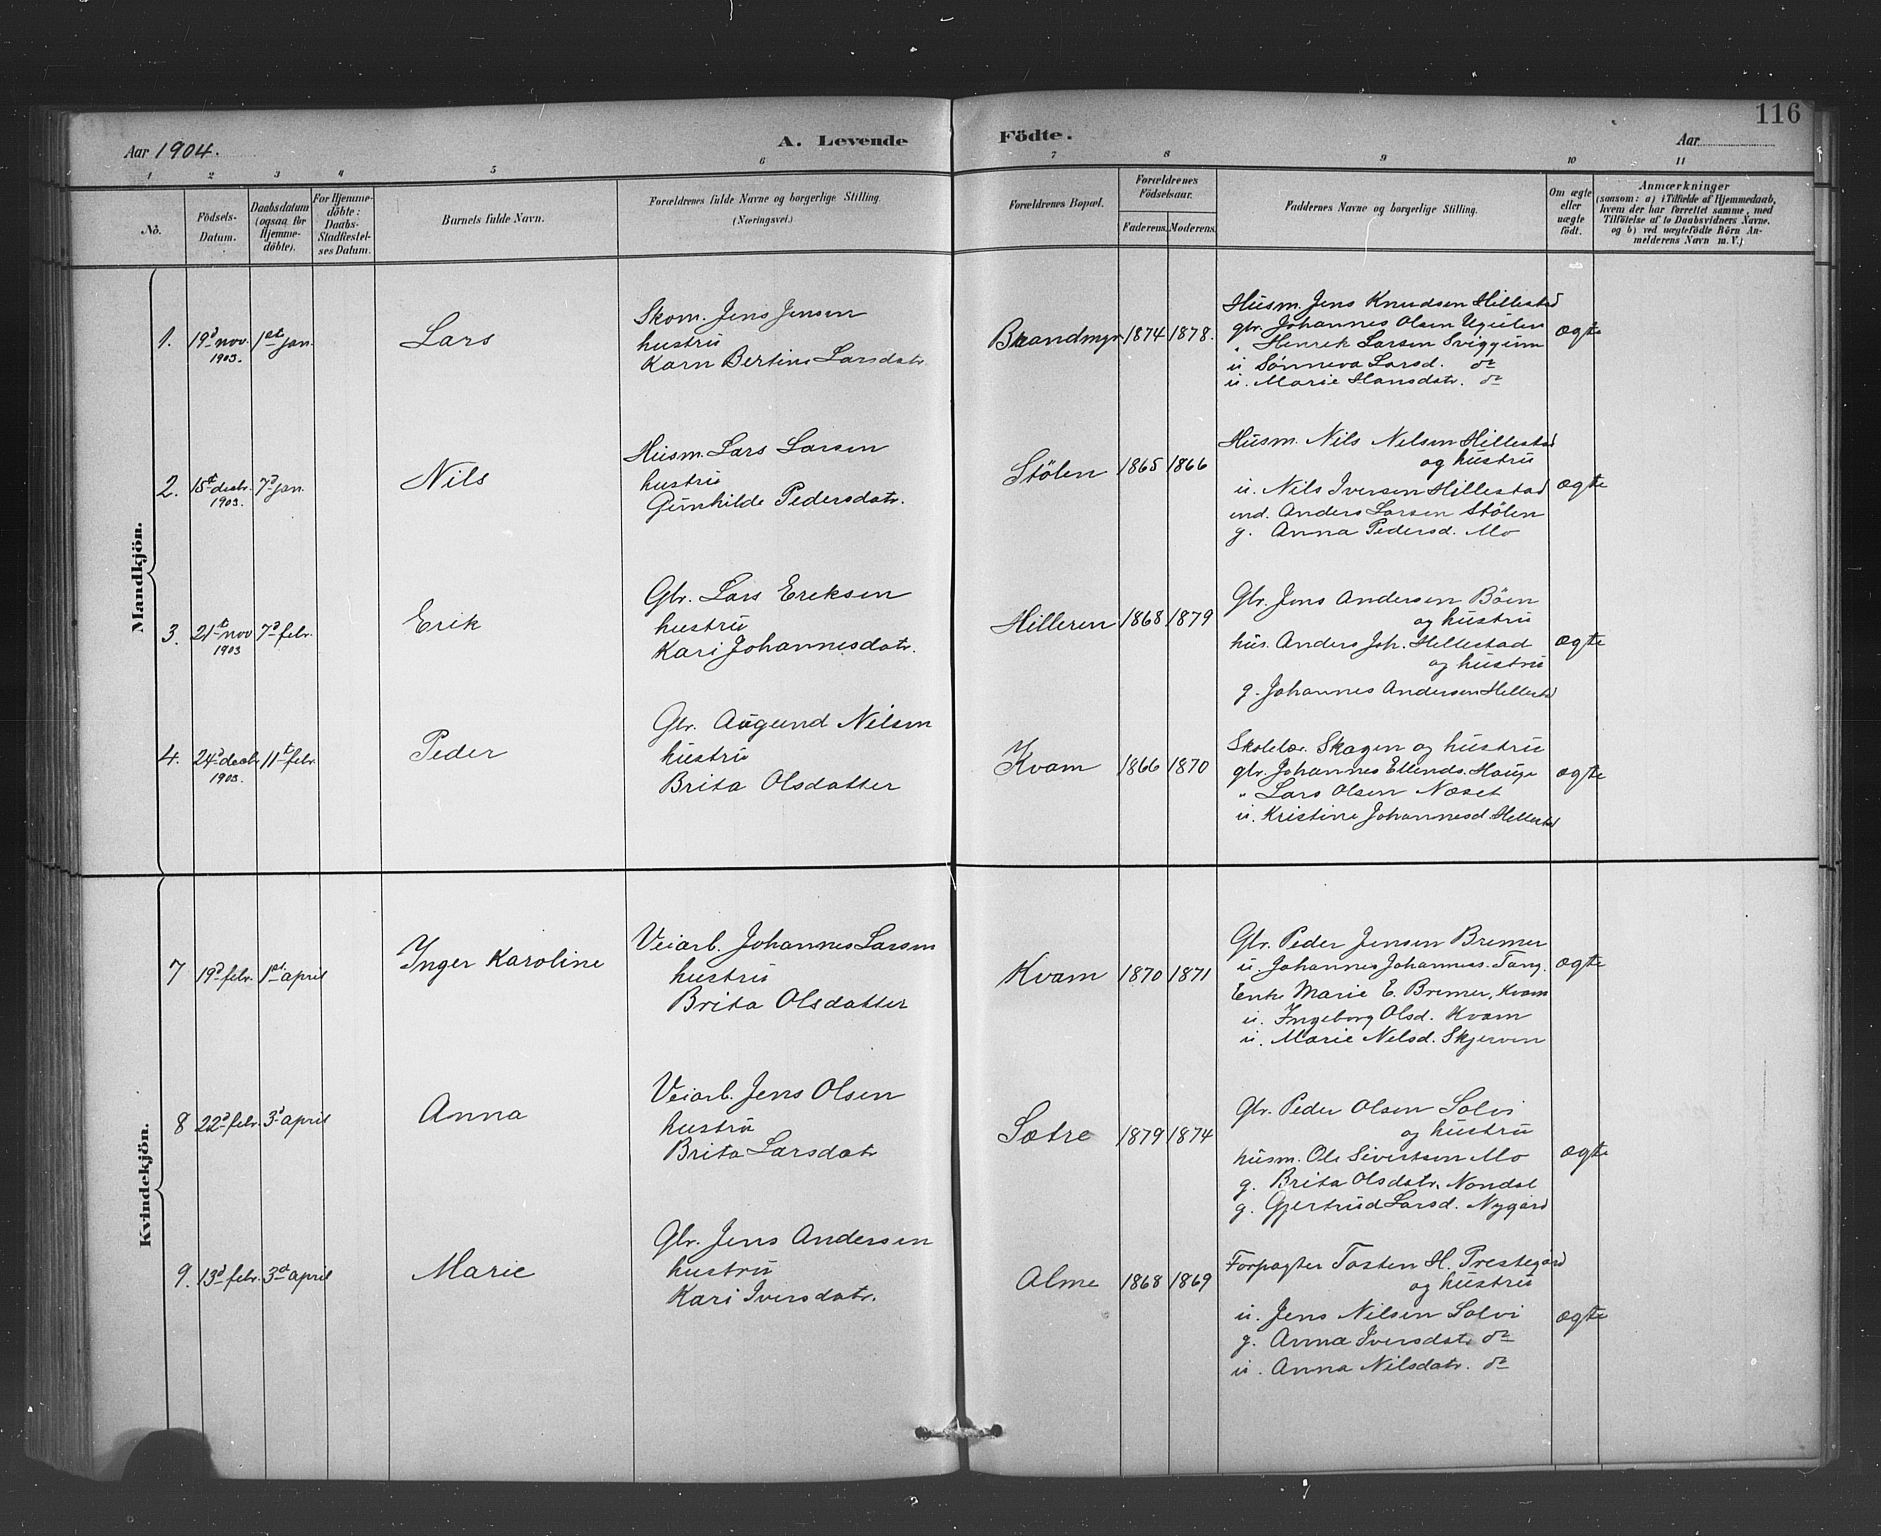 116
Aar 1904.
A. Levende Födte.
Aar
1 2 3 4 5 6 7 8 9 10 11
No.
Födsels-Datum.
Daabsdatum (ogsaa for Hjemme-döbte).
For Hjemme-döbte: Daabs-Stadfæstelses Datum.
Barnets fulde Navn.
Forældrenes fulde Navne og borgerlige Stilling. (Næringsvei.)
Forældrenes Bopæl.
Forældrenes Födselsaar.
Faderens. Moderens.
Faddernes Navne og borgerlige Stilling.
Om ægte eller uægte födt.
Anmærkninger
(saasom: a) i Tilfælde af Hjemmedaab, hvem der har forrettet samme, med Tilföielse af to Daabsvidners Navne. og b) ved uægtefödte Börn Anmelderens Navn m. V.)
Mandkjön.
1. 19d nov. 1903. 1st jan.
Lars
Skom. Jens Jensen
hustru
Karn Bertine Larsdatr.
Brandmyr 1874 1878.
Husm. Jens Knudsen Hillestad
gbr. Johannes Olsen Ugulen
" Henrik Larsen Sviggum
u. Sønneva Larsd. do
u. Marie Hansdatr. do
ægte
2. 15de decbr. 1903. 7d jan.
Nils
Husm. Lars Larsen
hustru
Gunhilde Pedersdatr.
Stölen 1865 1866
Husm. Nils Nilsen Hillestad
og hustru
u. Nils Iversen Hillestad
ind. Anders Larsen Stölen
g. Anna Pedersd. Mo
ægte
3. 21st nov 1903 7d febr.
Erik
Gbr. Lars Eriksen
hustru
Kari Johannesdatr.
Hilleren 1868 1879
Gbr. Jens Andersen Böen
og hustru
hus. Anders Joh. Hillestad
og hustru
g. Johannes Andersen Hillestad
ægte
4. 24d decbr. 1903. 11t febr.
Peder
Gbr. Augund Nilsen
hustru
Brita Olsdatter
Kvam 1866 1870
Skolelær. Skagen og hustru
gbr. Johannes Ellends. Hauge
" Lars Olsen Næset
u. Kristine Johannesd. Hillestad
ægte
Kvindekjön.
7 19d febr. 1st april
Inger Karoline
Veiarb. Johannes Larsen
hustru
Brita Olsdatter
Kvam 1870 1871
Gbr. Peder Jensen Bremer
u. Johannes Johanness. Tang.
Enke Marie E. Bremer, Kvam
u. Ingeborg Olsd. Kvam
u. Marie Nilsd. Skjerven
ægte
8 22d febr. 3d april
Anna
Veiarb. Jens Olsen
hustru
Brita Larsdatr
Sætre 1879 1874
Gbr. Peder Olsen Solvi
og hustru
husm. Ole Sivertsen Mo
g. Brita Olsdatr. Nondal
g. Gjertrud Larsd. Nygård
ægte
9. 13d febr. 3d april
Marie
Gbr. Jens Andersen
hustru
Kari Iversdatr.
Alme 1868 1869
Forpagter Tosten H. Prestegård
og hustru
u. Jens Nilsen Solvi
g. Anna Iversdatr do
u. Anna Nilsdatr. do
ægte